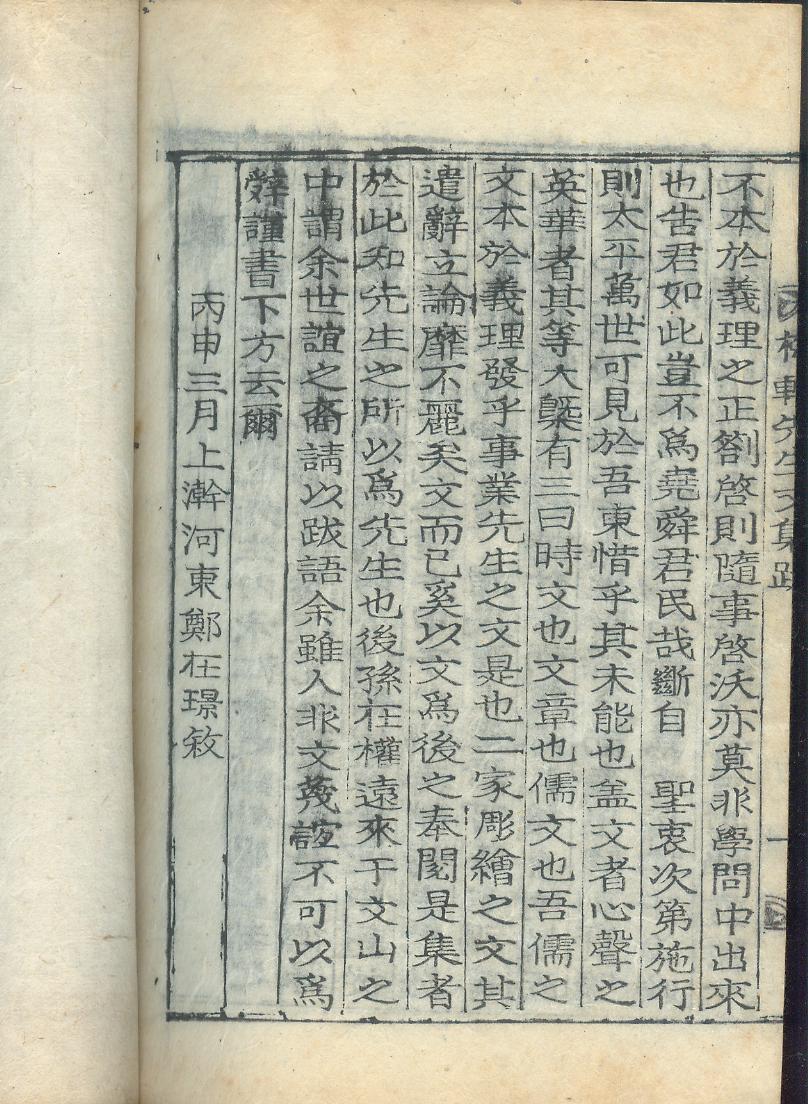 軒先生文集跋 一
不本於義理之正劄啓則隨事啓沃亦莫非學問中出來
也告君如此豈不爲堯舜君民哉斷自　聖衷次第施行
則太平萬世可見於吾東惜乎其未能也盖文者心聲之
英華者其等大槩有三曰時文也文章也儒文也吾儒之
文本於義理發乎事業先生之文是也二家彫繪之文其
遣辭立論靡不麗矣文而已奚以文爲後之奉閱是集者
於此知先生之所以爲先生也後孫在權遠來于文山之
中謂余世誼之裔請以跋語余雖人非文蔑誼不可以爲
辤謹書下方云爾
丙申三月上澣河東鄭在璟敘